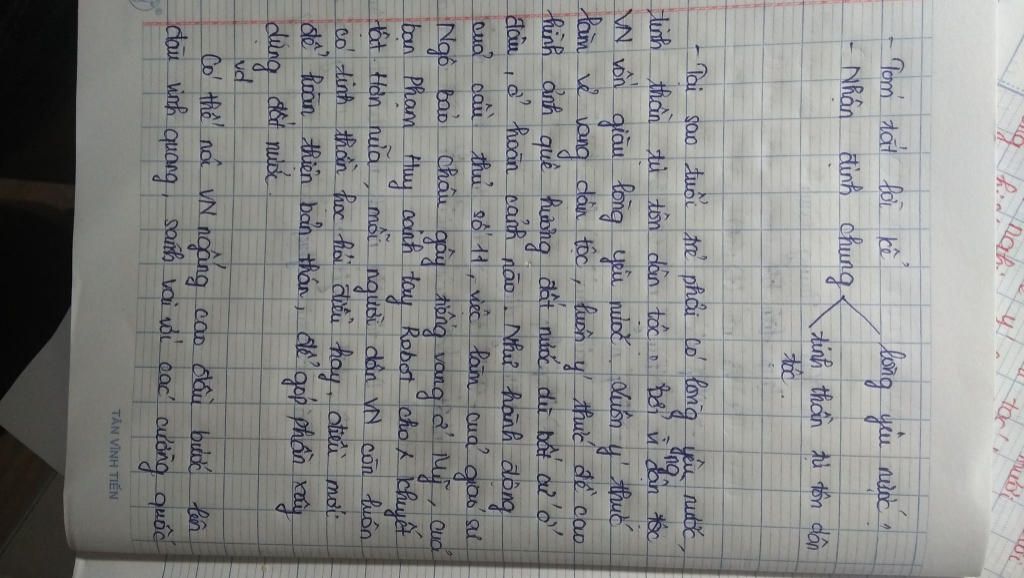 - Tóm tắt lời kể
- Nhận định chung
lòng yêu nước,
tinh thần tự tôn dân
tộc.
- Tại sao tuổi trẻ phải có lòng yêu nước,
tinh thần tự tôn dân tộc: Bởi vì dân tộc
VN vốn giàu lòng yêu nước, luôn ý thức
làm vẻ vang dân tộc, luôn ý thức đề cao
hình ảnh quê hương đất nước dù bất cứ ở
đâu, ở hoàn cảnh nào. Như hành động
của cầu thủ số 11, việc làm của giáo sư
Ngô bảo châu gây tiếng vang ở Mỹ, của
bạn Phạm Huy cánh tay Robot cho khuyết
tật. Hơn nữa, mỗi người dân VN còn luôn
có tinh thần học hỏi điều hay, điều mới
để hoàn thiện bản thân, để góp phần xây
dựng đất nước.
vd
Có thể nói VN ngẩng cao đầu bước lên
đài vinh quang, sánh vai với các cường quốc
TÂN VĨNH TIẾN